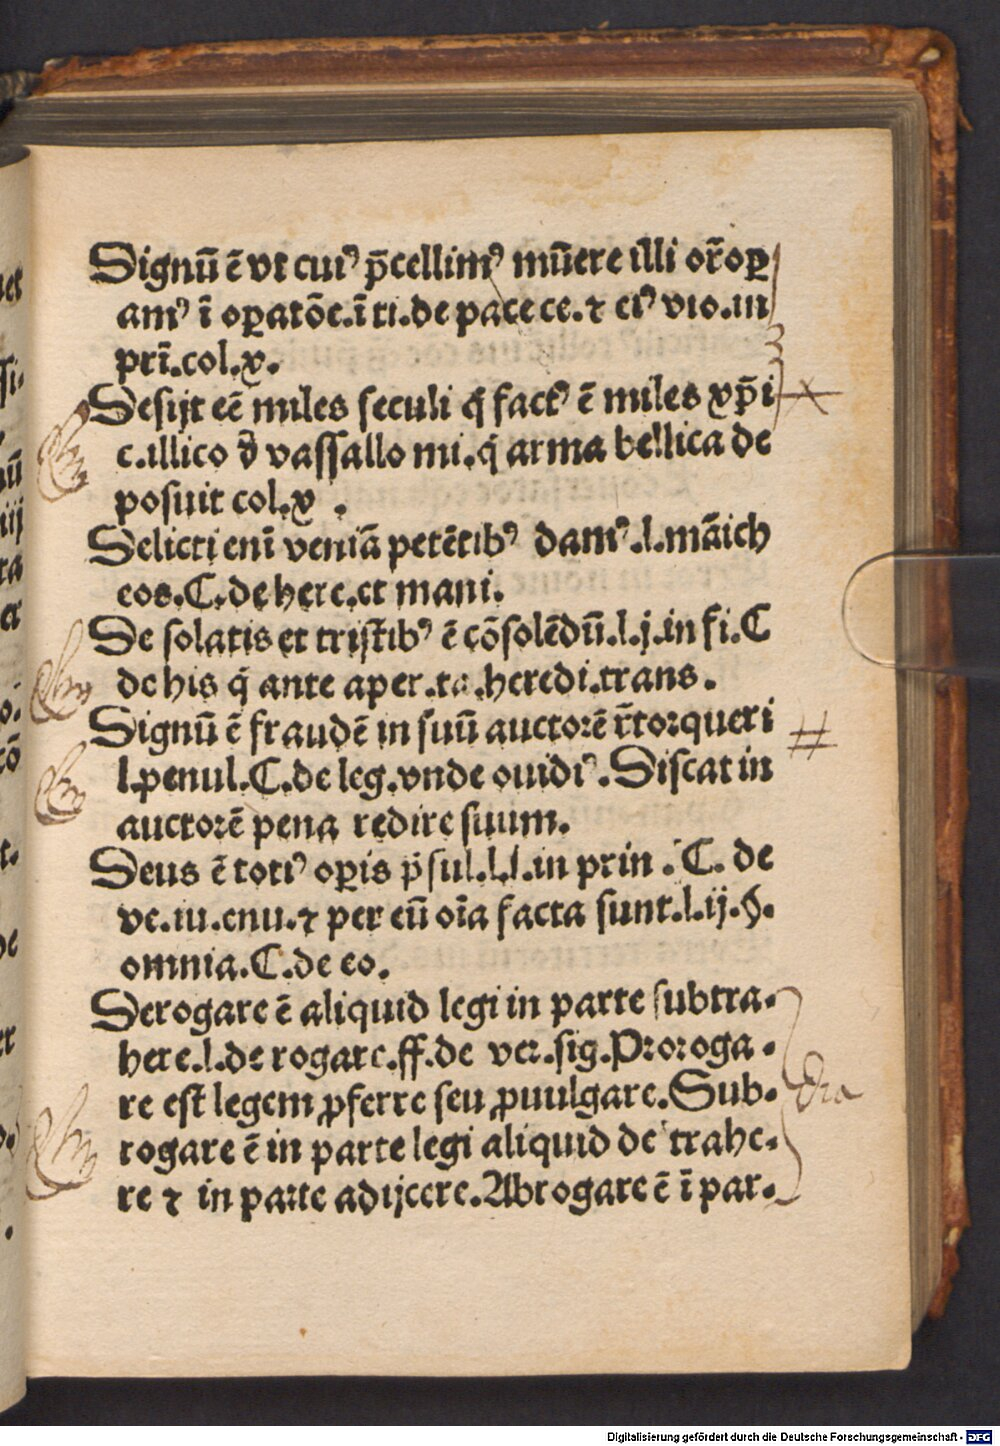 Dignū ē vt cuiꝰ p̄cellimꝰ mūere illi or̄oꝑ
amꝰ ī oꝑatōe.ī ti.de pace ce.⁊ eiꝰ vio.in
prī.col.x.
Desijt eē miles seculi q̇ factꝰ ē miles xp̄i
c.illico d̄ vassallo mi.q̇ arma bellica de
posuit col.x .
Delicti enī veniā petētibꝰ damꝰ.l.māich
eos.C.de here.et mani.
De solatis et tristibꝰ ē cōsolēdū.l.j.in fi.C
de his q̇ ante aper.ta.heredi.trans.
Dignū ē fraudē in suū auctorē r̄torqueri
l.penul.C.de leg.vnde ouidiꝰ.Discat in
auctorē pena redire suum.
Deus ē totiꝰ oꝑis p̄sul.l.j.in prin.C. de
ve.iu.enu.⁊ per eū oīa facta sunt.l.ij.§.
omnia.C.de eo.
Derogare ē aliquid legi in parte subtra⸗
here.l.derogare.ff.de ver.sig.Proroga⸗
re est legem ꝓferre seu ꝓuulgare.Sub⸗
rogare ē in parte legi aliquid detrahe⸗
re ⁊ in parte adijcere.Abrogare ē ī par⸗
Digitalisierung gefördert durch die Deutsche Forschungsgemeinschaft - DFG